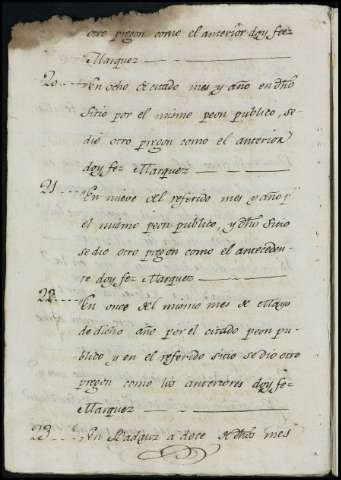 otro pregon como el anterior doy feè
Marquez
20.. En ocho de citado mes y año en dho
Sitio por el mismo peon publico, se
diò otro pregon como el anterior
doy fee Marquez
21.... En nueve del referido mes y año p.r
el mismo peon publico, y dho Sitio
se dio otro pregon como el anteceden
te doy feè Marquez
22.... En once del mismo mes de Mayo
de dicho año por el citado peon pu-
blico y en el referido sitio se dio otro
pregon como los anteriores doy feè
Marquez
23.... En Badajoz a doce de dho mes